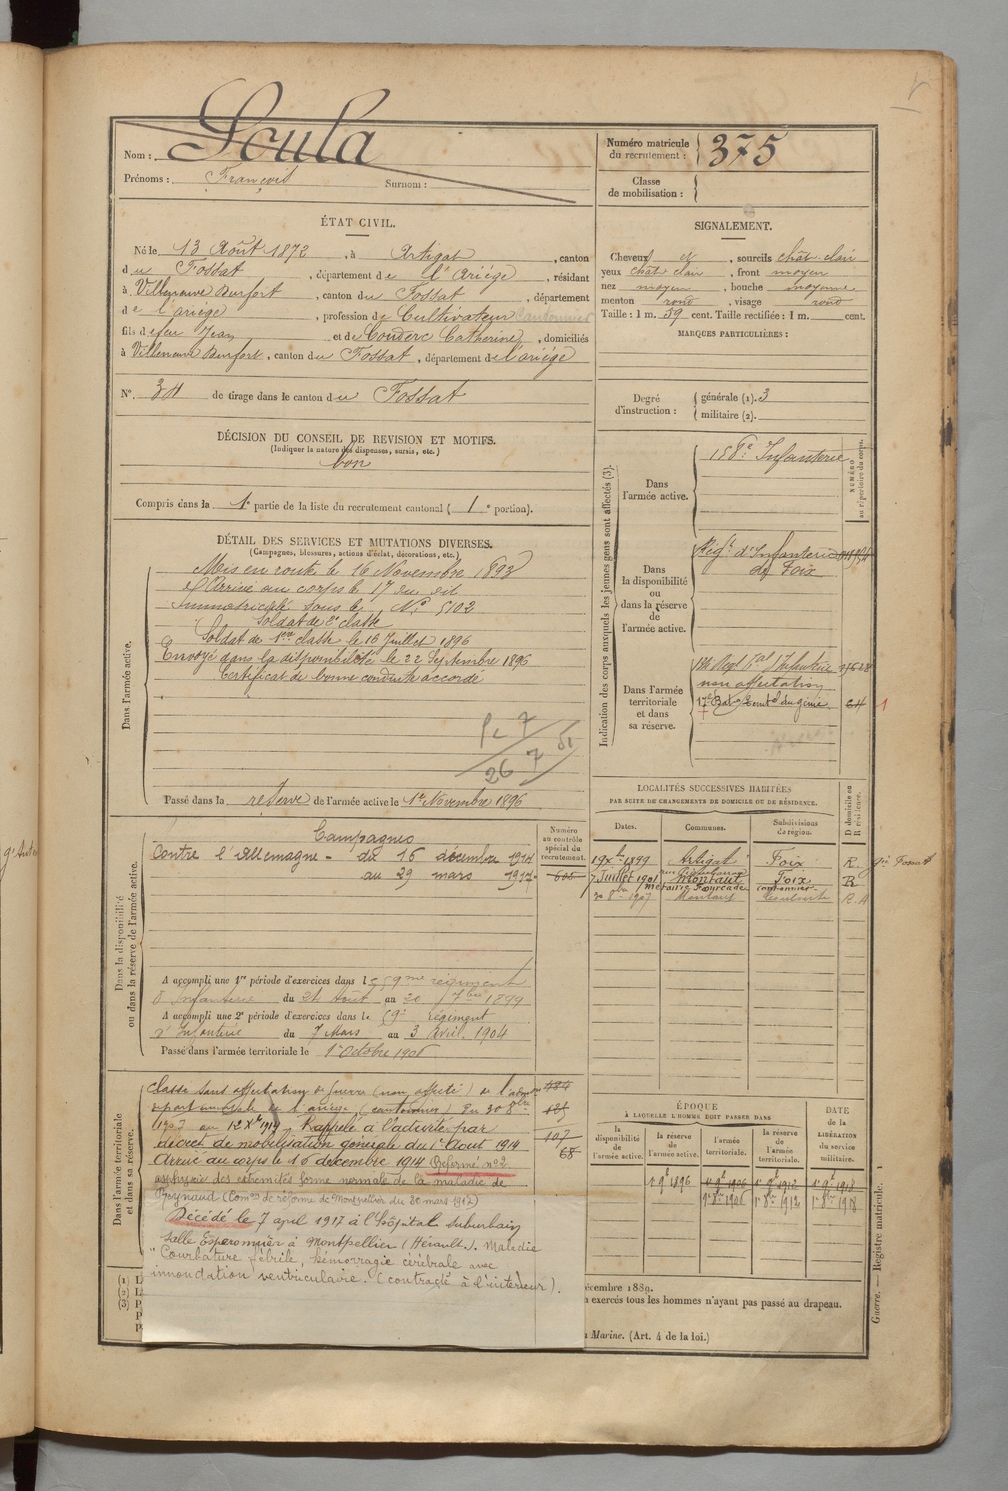 Nom : Soula
Prénoms : François Surnom :
Numéro matricule du recrutement : 375
Classe de mobilisation :
ÉTAT CIVIL.
Né le 13 Août 1872, à Artigat, canton
du Fossat, département de l'Ariège, résidant
à Villeneuve Durfort, canton du Fossat, département
de l'ariège, profession de Cultivateur Cantonnier
fils de feu Jean et de Couderc Catherine, domiciliés
à Villeneuve Durfort, canton du Fossat, département de l'ariège
N° 34 de tirage dans le canton du Fossat
SIGNALEMENT.
Cheveux et, sourcils chât. clair
yeux chât clair, front moyen
nez moyen, bouche moyenne
menton rond, visage rond
Taille : 1 m. 59 cent. Taille rectifiée : 1 m. cent.
MARQUES PARTICULIÈRES :
Degré d'instruction : générale (1). 3
militaire (2).
DÉCISION DU CONSEIL DE REVISION ET MOTIFS.
(Indiquer la nature des dispenses, sursis, etc.)
bon
Compris dans la 1e partie de la liste du recrutement cantonal ( 1 e portion).
DÉTAIL DES SERVICES ET MUTATIONS DIVERSES.
(Campagnes, blessures, actions d'éclat, décorations, etc.)
Dans l'armée active.
Mis en route le 16 Novembre 1893
Arrivé au corps le 17 du dit
Immatriculé sous le N° 5102
Soldat de 2e classe
Soldat de 1ere classe le 16 Juillet 1896
Envoyé dans la disponibilité le 22 Septembre 1896
Certificat de bonne conduite accordé
Passé dans la réserve de l'armée active le 1er Novembre 1896
Indication des corps auxquels les jeunes gens sont affectés (3).
NUMÉRO au répertoire du corps.
Dans l'armée active.
158e Infanterie
Dans la disponibilité ou dans la réserve de l'armée active.
Régt. d'Infanterie
de Foix
Dans l'armée territoriale et dans sa réserve.
non affectation
LOCALITÉS SUCCESSIVES HABITÉES
PAR SUITE DE CHANGEMENTS DE DOMICILE OU DE RÉSIDENCE.
Dates. Communes. Subdivisions de région. D domicile ou R résidence.
19 Xbre 1899 Artigat Foix R.
7 Juillet 1901 Montaut Foix R
métairie Fourcade cantonnier
20 8bre 1907 Montaut R.
Dans la disponibilité ou dans la réserve de l'armée active.
Numéro au contrôle spécial du recrutement.
Campagnes
Contre l'Allemagne - du 16 décembre 1914
au 29 mars 1917 -
A accompli une 1re période d'exercices dans le 59me régiment
d'Infanterie du 24 Août au 20 7bre 1899
A accompli une 2e période d'exercices dans le 59e Régiment
d'Infanterie du 7 Mars au 3 Avril 1904
Passé dans l'armée territoriale le 1er Octobre 1906
Dans l'armée territoriale et dans sa réserve.
Classé sans affectation de guerre (non affecté) de l'admon
départementale de l'ariège (cantonnier) du 30 8bre
1907 au 12 Xbre 1914. Rappelé à l'activité par
décret de mobilisation générale du 1er Août 1914
Arrivé au corps le 16 decembre 1914. Réformé n°2
asphyxie des extrémités forme normale de la maladie de
Reynaud (Comon de réforme de Montpellier du 8e mars 1917)
Décédé le 7 april 1917 à l'Hôpital suburbain
Salle Esperonnier à Montpellier (Hérault). Maladie
"Courbature fébrile, hémorragie cérébrale avec
innondation ventriculaire. (contracté à l'intérieur).
ÉPOQUE
À LAQUELLE L'HOMME DOIT PASSER DANS
la disponibilité de l'armée active. la réserve de l'armée active. l'armée territoriale. la réserve de l'armée territoriale. DATE de la LIBÉRATION du service militaire.
1er 9bre 1896 1er 9bre 1906 1er 9bre 1912 1er 9bre 1918
1er 8bre 1906 1er 8bre 1912 1er 8bre 1918
décembre 1889.
exercés tous les hommes n'ayant pas passé au drapeau.
Marine. (Art. 4 de la loi.)
Guerre. — Registre matricule.